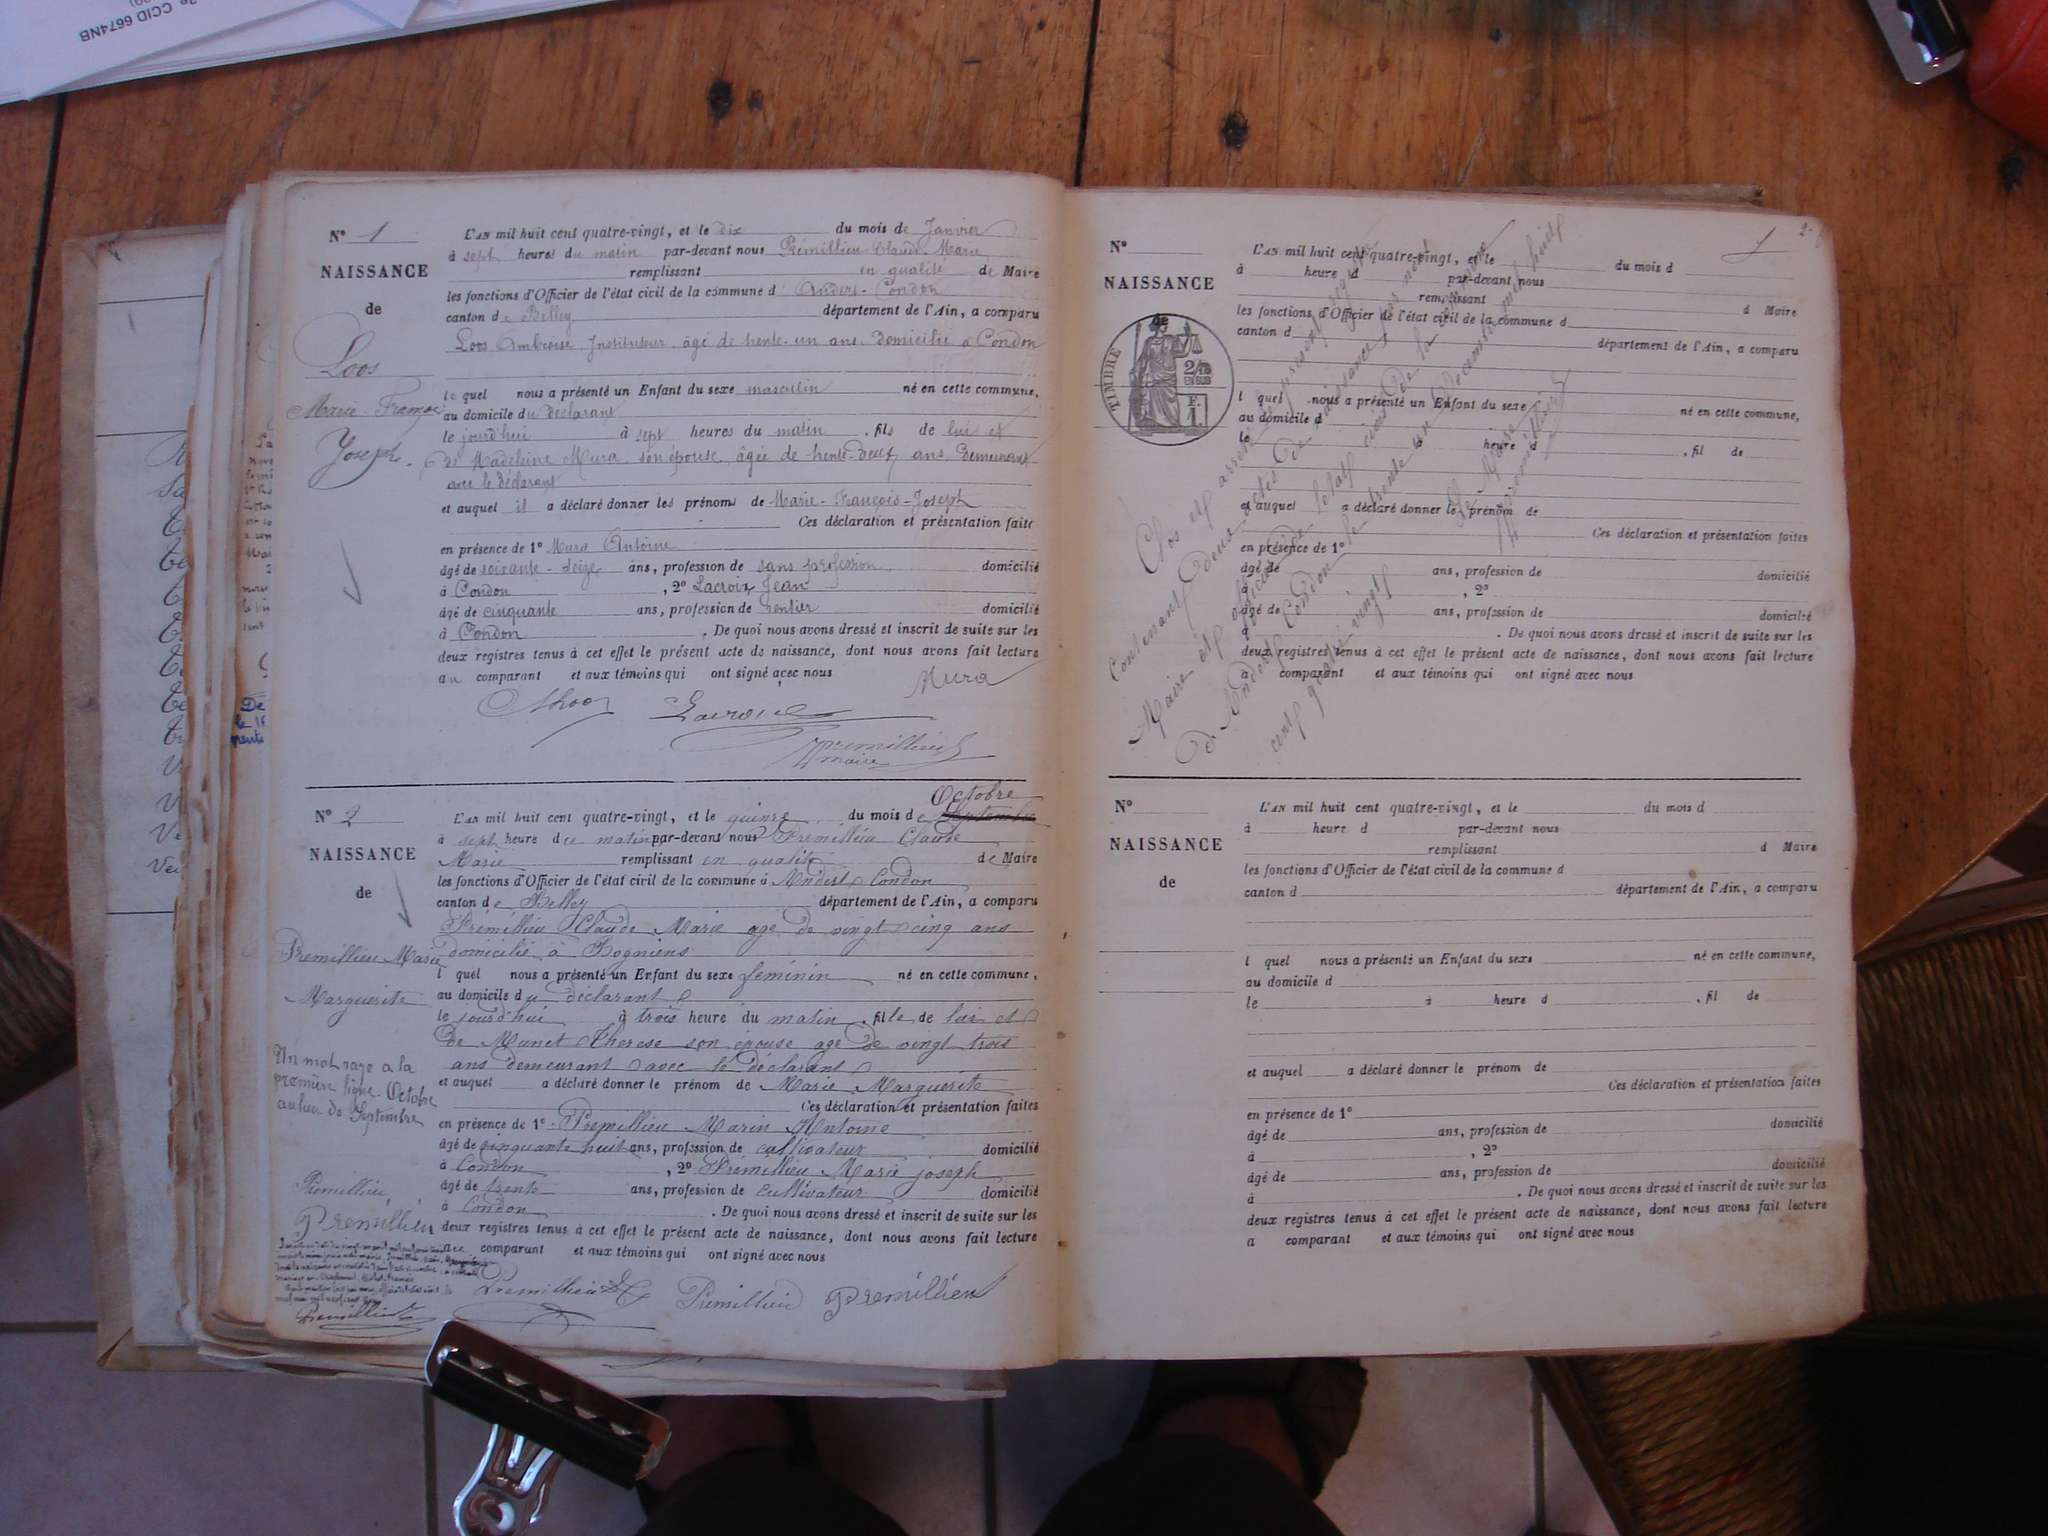 CCID 6674NB
N° 1
NAISSANCE
de
Loos
Marie-François
Joseph.
L'AN mil huit cent quatre-vingt, et le dix du mois de Janvier
à sept heures du matin par-devant nous Prémillieu Claude Marie
remplissant en qualité de Maire
les fonctions d'Officier de l'état civil de la commune d' Andert-Condon
canton de Belley département de l'Ain, a comparu
Loos Ambroise, Instituteur, âgé de trente-un ans, domicilié à Condon
lequel nous a présenté un Enfant du sexe masculin né en cette commune,
au domicile du déclarant
le jourd'hui à sept heures du matin, fils de lui et
de Madeleine Mura son épouse, âgée de trente-deux ans, demeurant
avec le déclarant
et auquel il a déclaré donner les prénoms de Marie-François-Joseph
Ces déclaration et présentation faite
en présence de 1° Mura Antoine
âgé de soixante-seize ans, profession de sans profession, domicilié
à Condon, 2° Lacroix Jean
âgé de cinquante ans, profession de rentier domicilié
à Condon. De quoi nous avons dressé et inscrit de suite sur les
deux registres tenus à cet effet le présent acte de naissance, dont nous avons fait lecture
au comparant et aux témoins qui ont signé avec nous
Mura
ALoos Lacroix
Premillieu
maire
N° 2
NAISSANCE
de
Premillieu Marie
Marguerite
Un mot rayé a la
première ligne. Octobre
au lieu de Septembre
Premillieu
Premillieu
Premillieu
Octobre
L'AN mil huit cent quatre-vingt, et le quinze du mois de Septembre
à sept heure du matin par-devant nous Premillieu Claude
Marie remplissant en qualité de Maire
les fonctions d'Officier de l'état civil de la commune à Andert Condon
canton de Belley département de l'Ain, a comparu
Premillieu Claude Marie age de vingt cinq ans
domicilié à Bogniens
l quel nous a présenté un Enfant du sexe féminin né en cette commune,
au domicile du déclarant
le jourd'hui à trois heure du matin, fille de lui et
de Munet Therese son épouse age de vingt trois
ans demeurant avec le déclarant
et auquel a déclaré donner le prénom de Marie Marguerite
Ces déclaration et présentation faites
en présence de 1° Premillieu Marin Antoine
âgé de cinquante huit ans, profession de cultivateur domicilié
à Condon, 2° Premillieu Marie joseph
âgé de trente ans, profession de Cultivateur domicilié
à Condon. De quoi nous avons dressé et inscrit de suite sur les
deux registres tenus à cet effet le présent acte de naissance, dont nous avons fait lecture
au comparant et aux témoins qui ont signé avec nous
Premillieu Premillieu Premillieu
2
N°
NAISSANCE
de
TIMBRE
2/10
EN SUS
F.
1.
L'AN mil huit cent quatre-vingt, et le du mois d
à heure d par-devant nous
remplissant d Maire
les fonctions d'Officier de l'état civil de la commune d
canton d département de l'Ain, a comparu
l quel nous a présenté un Enfant du sexe né en cette commune,
au domicile d
le à heure d, fil de
et auquel a déclaré donner le prénom de
Ces déclaration et présentation faites
en présence de 1°
âgé de ans, profession de domicilié
à, 2°
âgé de ans, profession de domicilié
à. De quoi nous avons dressé et inscrit de suite sur les
deux registres tenus à cet effet le présent acte de naissance, dont nous avons fait lecture
a comparant et aux témoins qui ont signé avec nous
Clos et arrêté le présent registre
Contenant deux actes de naissance par nous
Maire et officier de l'état civil de la commune
d'Andert Condon le trente un Decembre mil huit
cent quatre vingt
Le Maire
Premillieu
N°
NAISSANCE
de
L'AN mil huit cent quatre-vingt, et le du mois d
à heure d par-devant nous
remplissant d Maire
les fonctions d'Officier de l'état civil de la commune d
canton d département de l'Ain, a comparu
l quel nous a présenté un Enfant du sexe né en cette commune,
au domicile d
le à heure d, fil de
et auquel a déclaré donner le prénom de
Ces déclaration et présentation faites
en présence de 1°
âgé de ans, profession de domicilié
à, 2°
âgé de ans, profession de domicilié
à. De quoi nous avons dressé et inscrit de suite sur les
deux registres tenus à cet effet le présent acte de naissance, dont nous avons fait lecture
a comparant et aux témoins qui ont signé avec nous